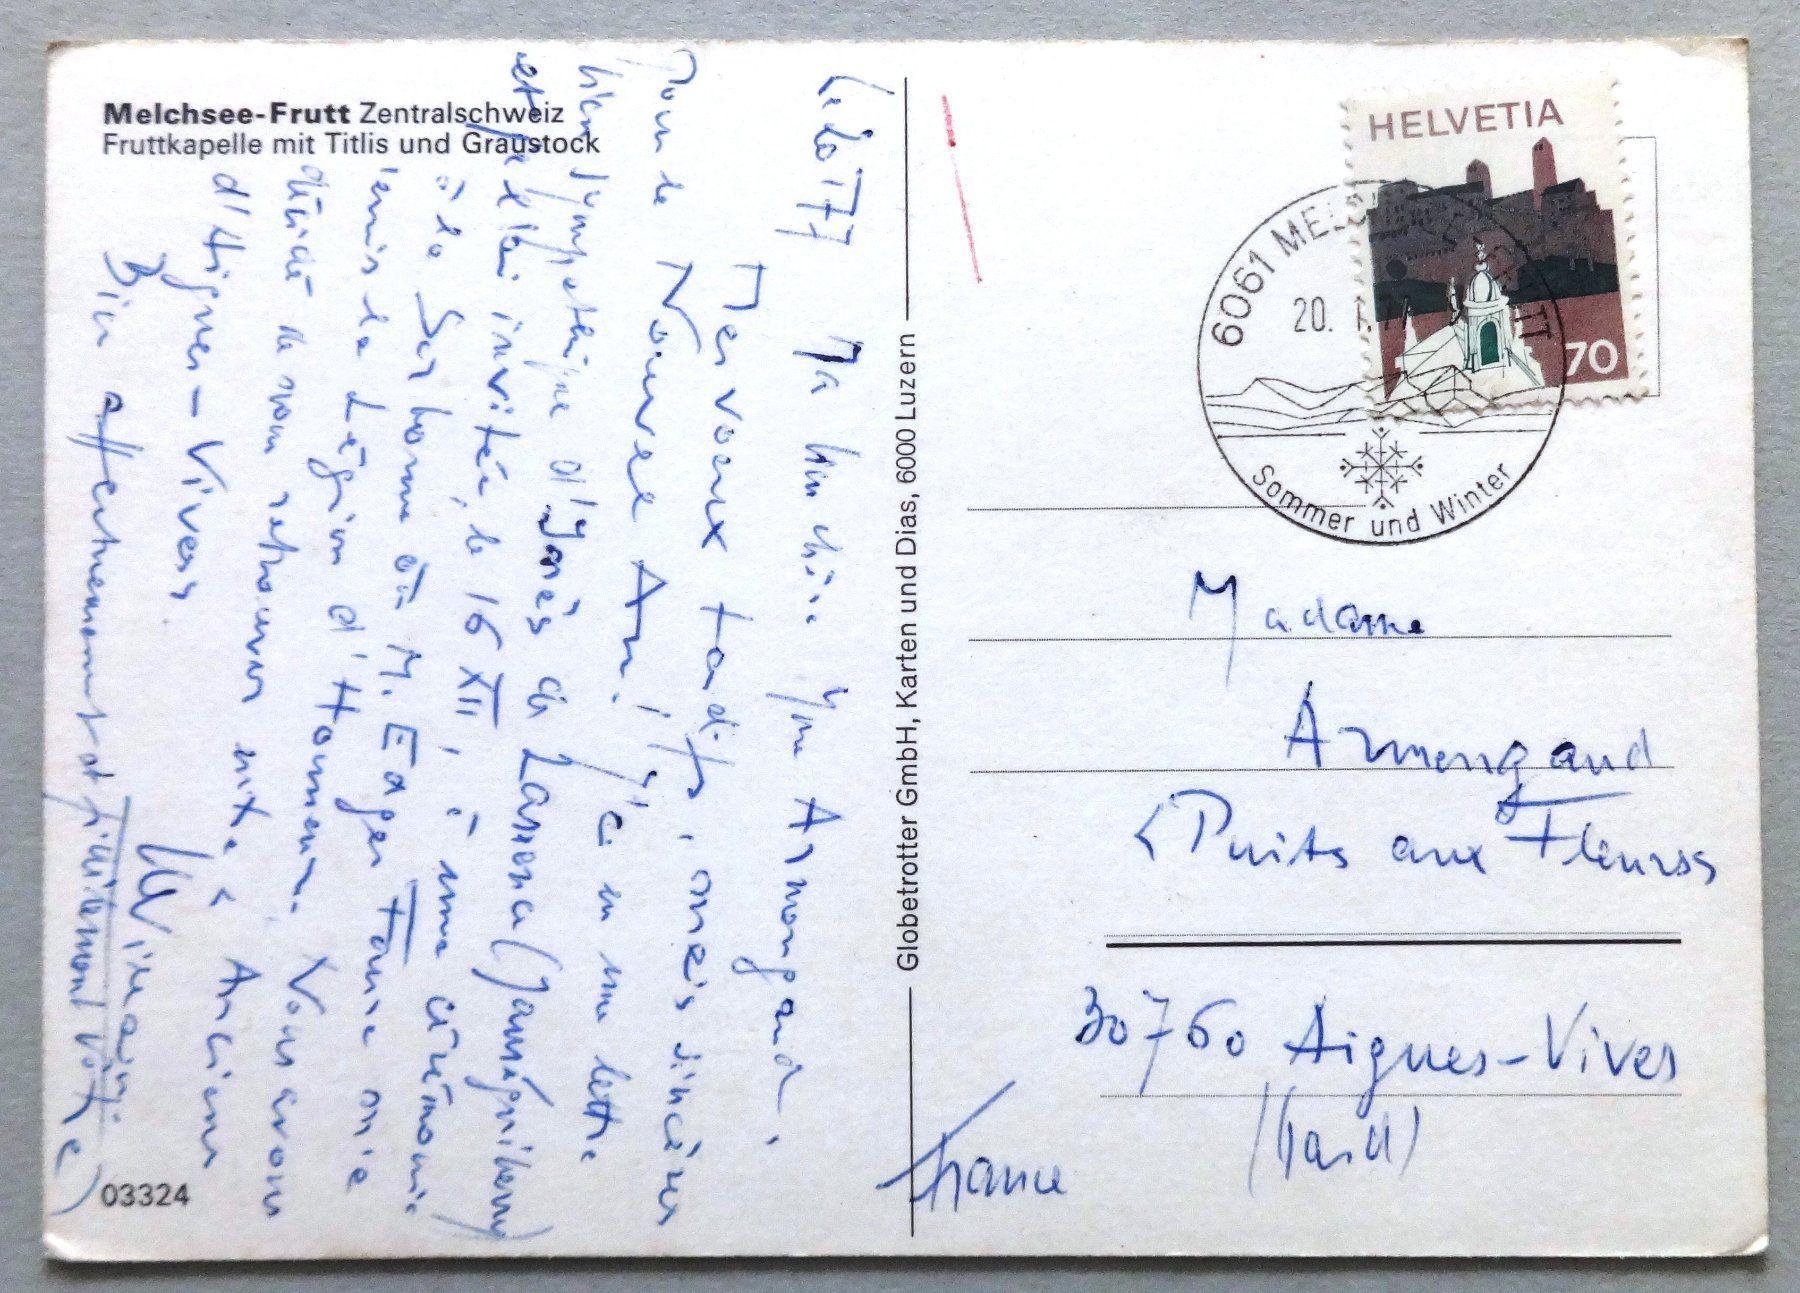 Melchsee-Frutt Zentralschweiz
Fruttkapelle mit Titlis und Graustock
Ma bien chère Yve Armengaud,
Mes voeux tardifs, mais sincères
pour le Nouvel An! J'ai eu une lettre
bien sympathique d'Agnès de
et j'ai été invitée, le 16 XII, à une cérémonie
à la Sorbonne où M. Edgar Faure m'a
remis la Légion d'Honneur. Nous avons
décidé de nous retrouver entre "Anciens
d'Aigues-Vives
Bien affectueusement et fidèlement vôtre)
03324
Globetrotter GmbH, Karten und Dias, 6000 Luzern
HELVETIA
70
6061 MELCHSEE-FRUTT
20. 1. 77
Sommer und Winter
Madame
Armengaud
"Puits aux Fleurs"
30760 Aigues-Vives
(Gard)
France